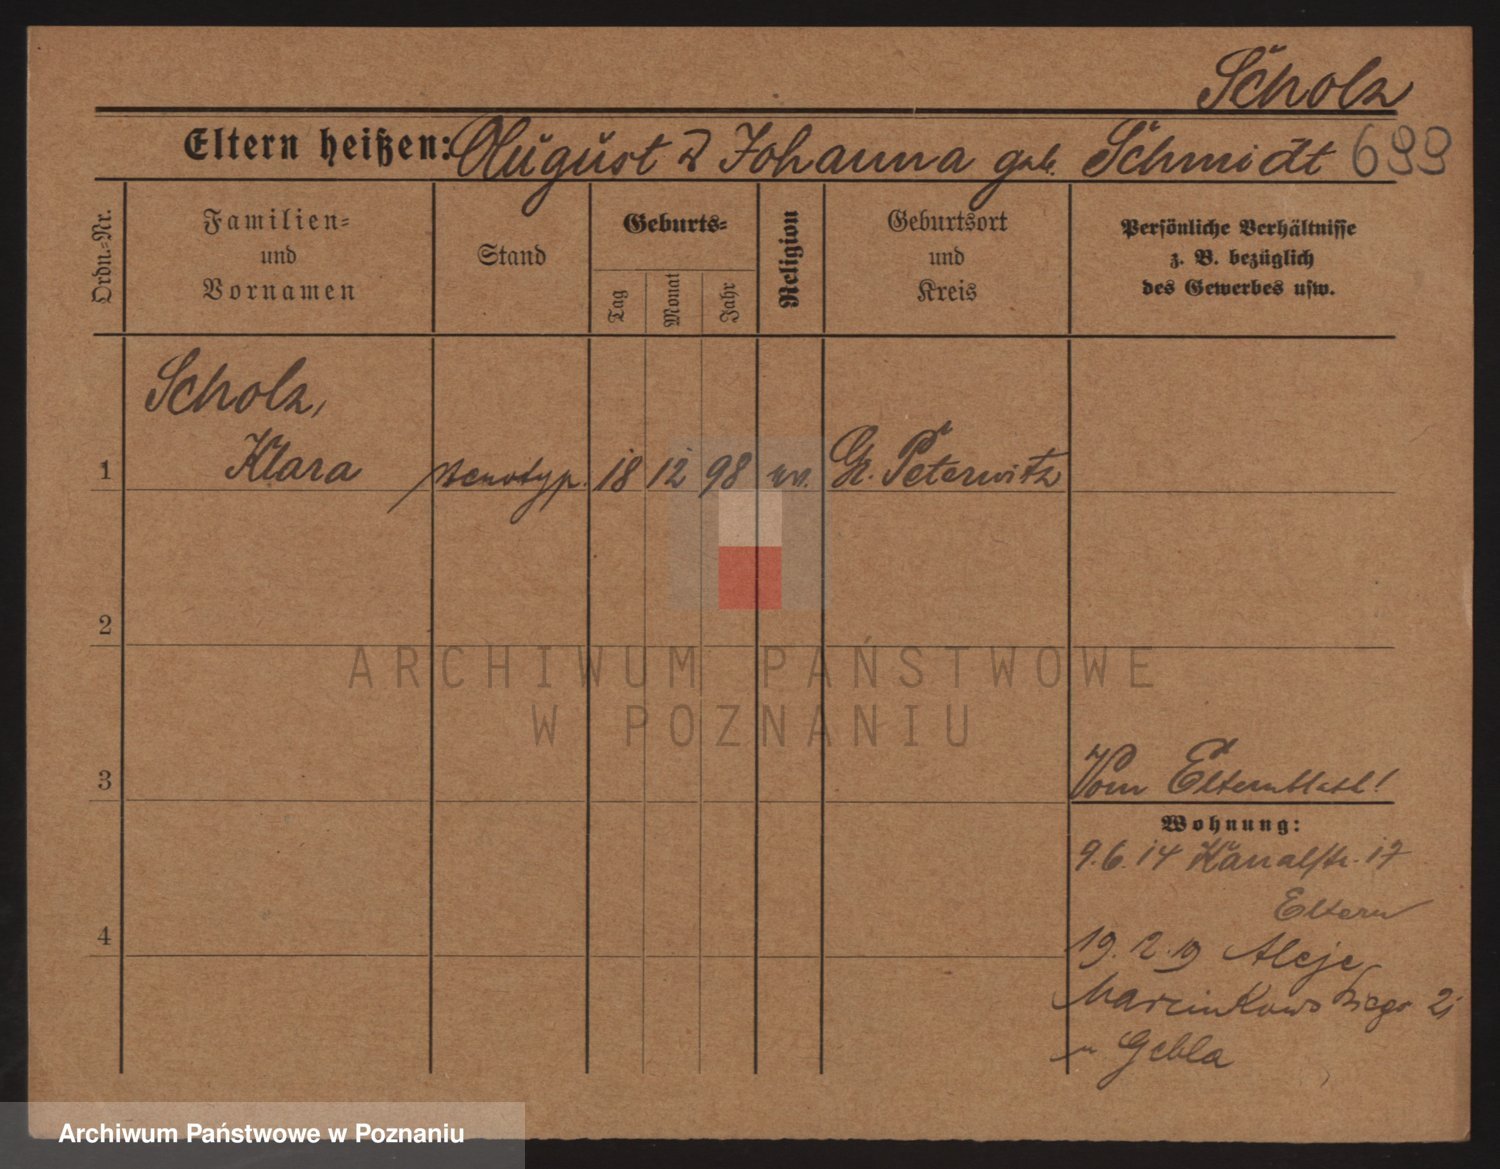 Scholz
Eltern heißen: August u Johanna geb. Schmidt 699
Ordn.=Nr.
Familien=
und
Vornamen
Stand
Geburts=
Tag
Monat
Jahr
Religion
Geburtsort
und
Kreis
Persönliche Verhältnisse
z. B. bezüglich
des Gewerbes usw.
Scholz,
1 Klara stenotyp. 18 12 98 ev. Gr. Peterwitz
2
ARCHIWUM PAŃSTWOWE
W POZNANIU
3 Vom Elternblatt!
Wohnung:
9.6.14 Kanalstr. 17
Eltern
4
19.2.19 Aleje
Marcinkowskiego
Gebla
Archiwum Państwowe w Poznaniu